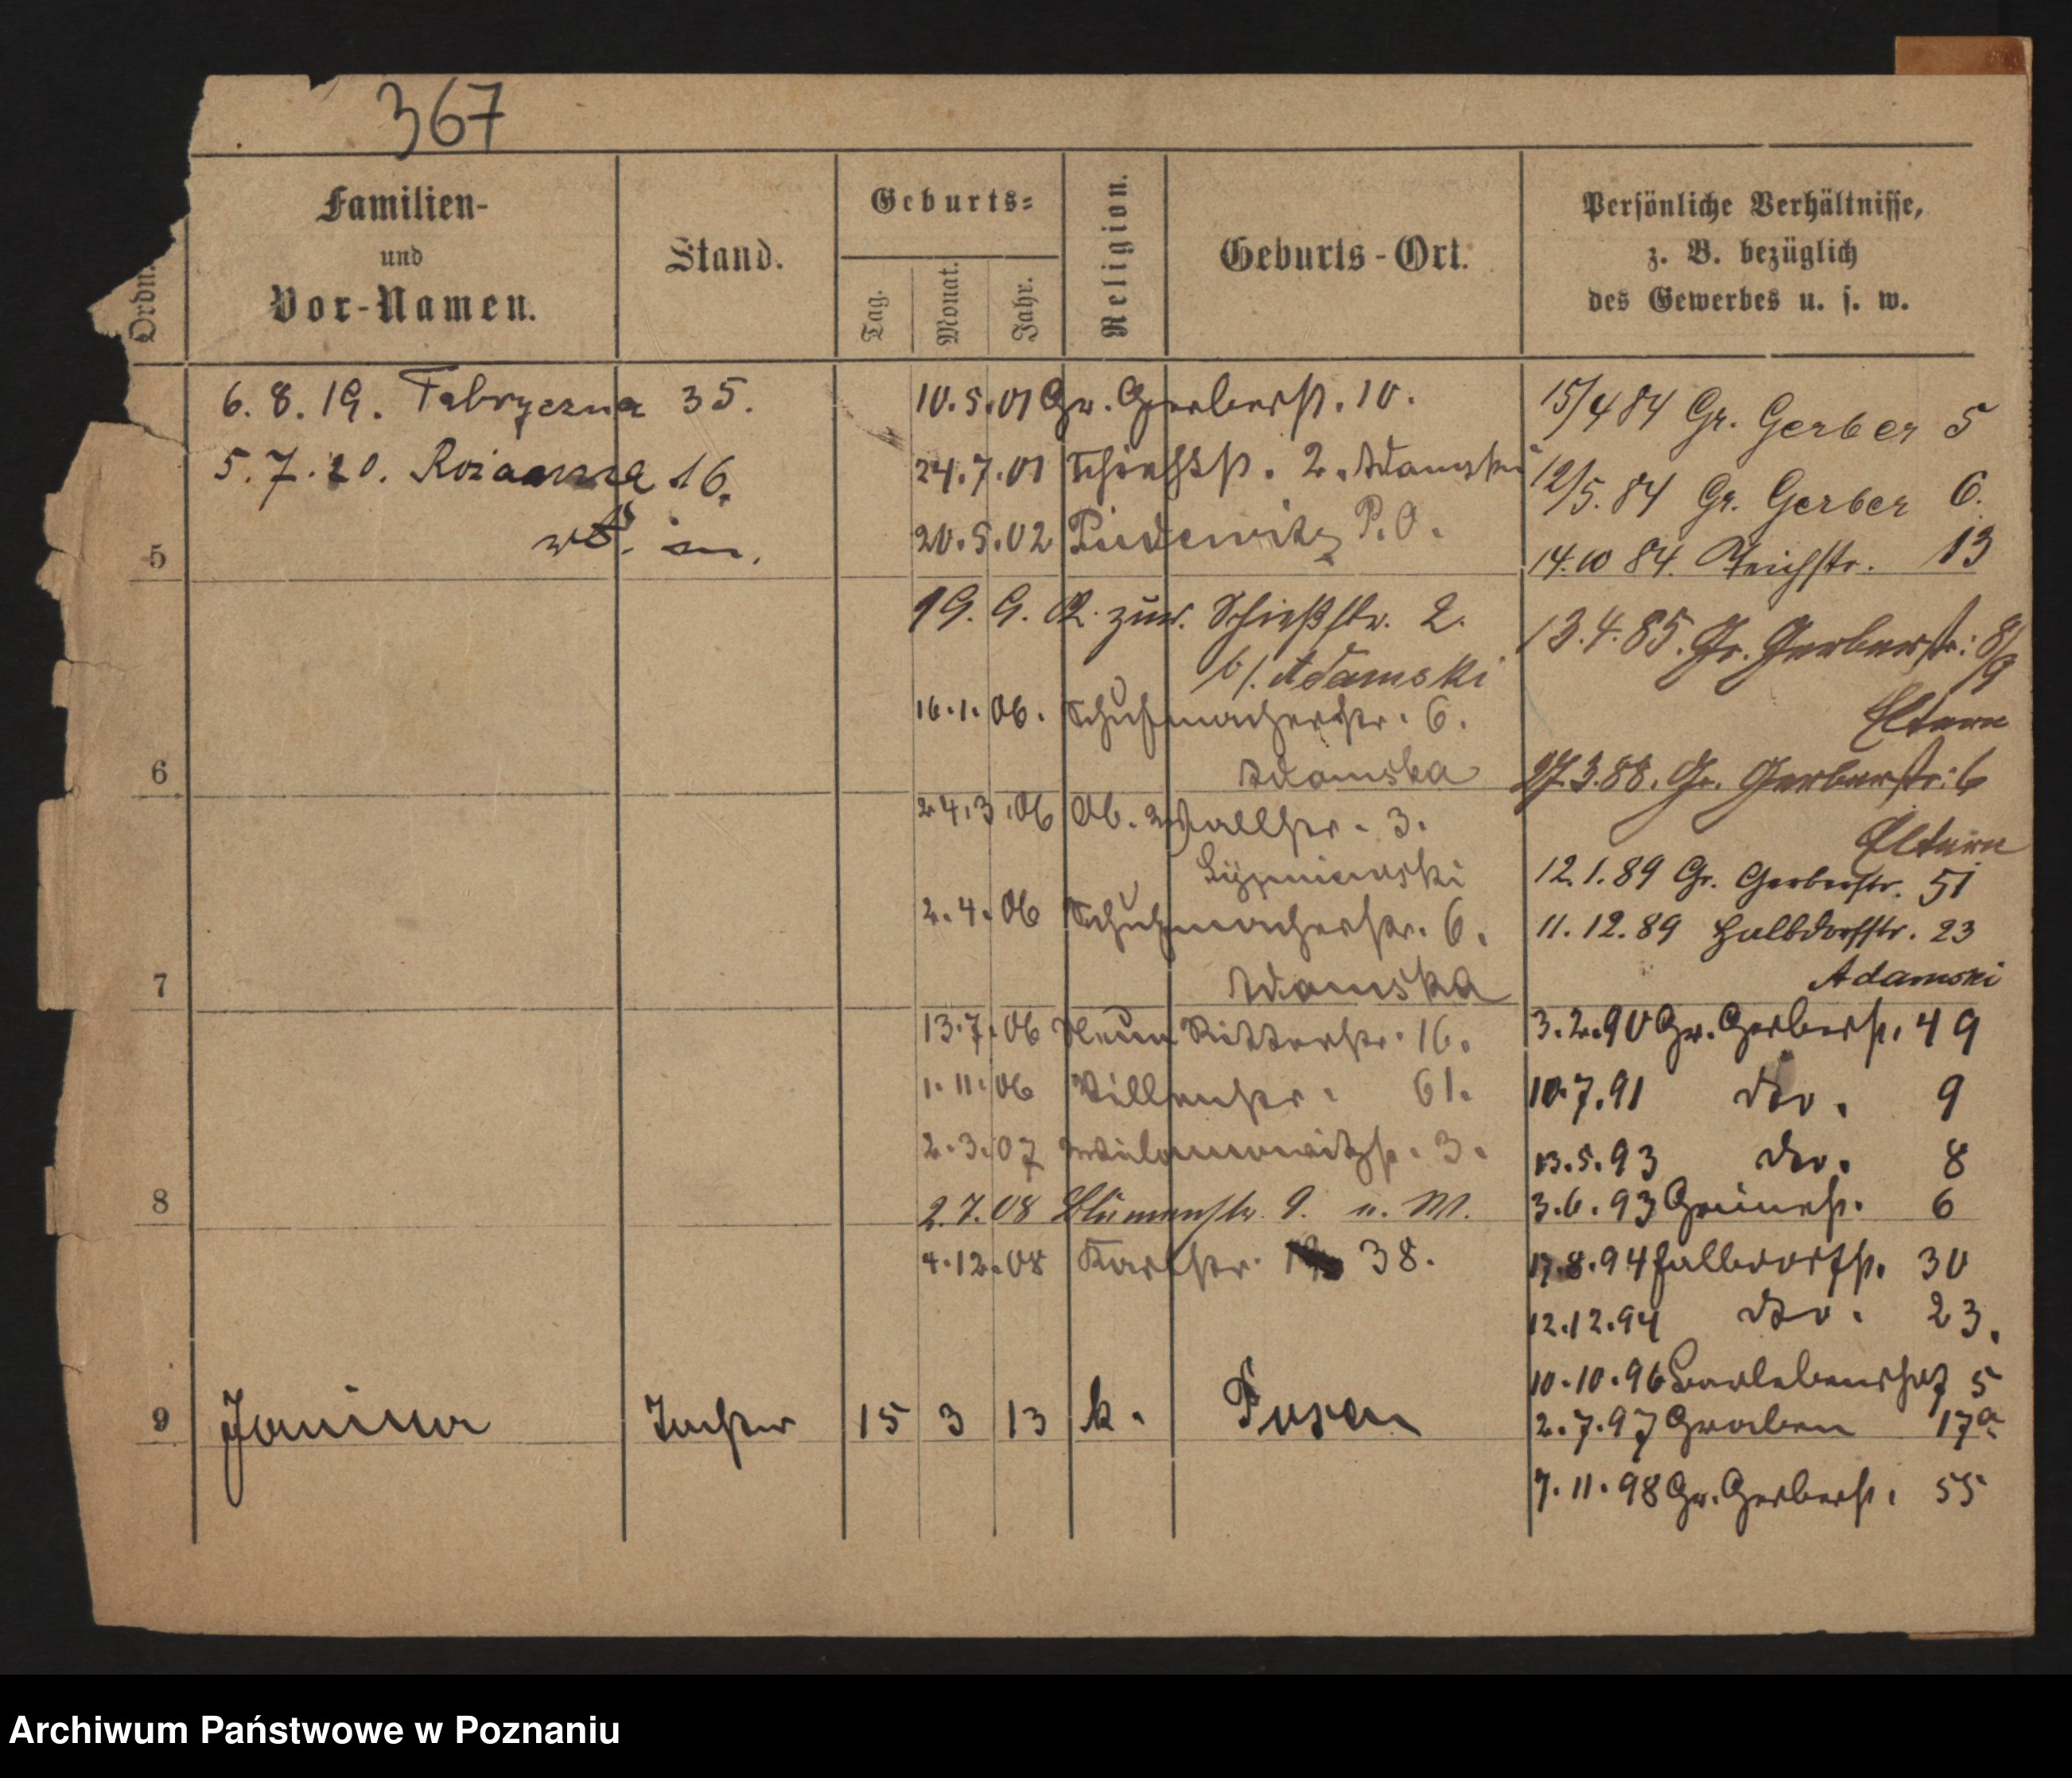 367
Ordn.
Familien-
und
Vor-Namen.
Stand.
Geburts-
Tag.
Monat.
Jahr.
Religion.
Geburts-Ort.
Persönliche Verhältnisse,
z. B. bezüglich
des Gewerbes u. s. w.
6. 8. 19. Fabryczna 35.
5. 7. 20. 16.
5
6
7
8
10.5.01 Gr. Gerberstr. 10.
24.7.01 Schießstr. 2. Adamski
20.5.02 Pudewitz P.O.
19. 9. 02. zur. Schießstr. 2.
b/. Adamski
16.1.06. Schuhmacherstr. 6.
Adamska
24.3.06 Ob. Wallstr. 3.
2.4.06 Schuhmacherstr. 6.
Adamska
13.7.06 Neue Ritterstr. 16.
1.11.06 61.
2.3.07 3.
2.7.08 Blumenstr. 9. u. M.
4.12.08 Karlstr. 38.
9 Janina Tochter 15 3 13 k. Posen
15/4 84 Gr. Gerber 5
12/5. 84 Gr. Gerber 6.
14.10 84. Teichstr. 13
13.4.85. Gr. Gerberstr: 8/9
Eltern
27.3.88. Gr. Gerberstr: 6
Eltern
12.1.89 Gr. Gerberstr. 51
11.12.89 Halbdorfstr. 23
Adamski
3.2.90 Gr. Gerberstr. 49
10.7.91 do. 9
13.5.93 do. 8
3.6.93 Grünestr. 6
17.8.94 Halbdorfstr. 30
12.12.94 do. 23.
10.10.96 5
2.7.97 Graben 17a
7.11.98 Gr. Gerberstr. 55
Archiwum Państwowe w Poznaniu